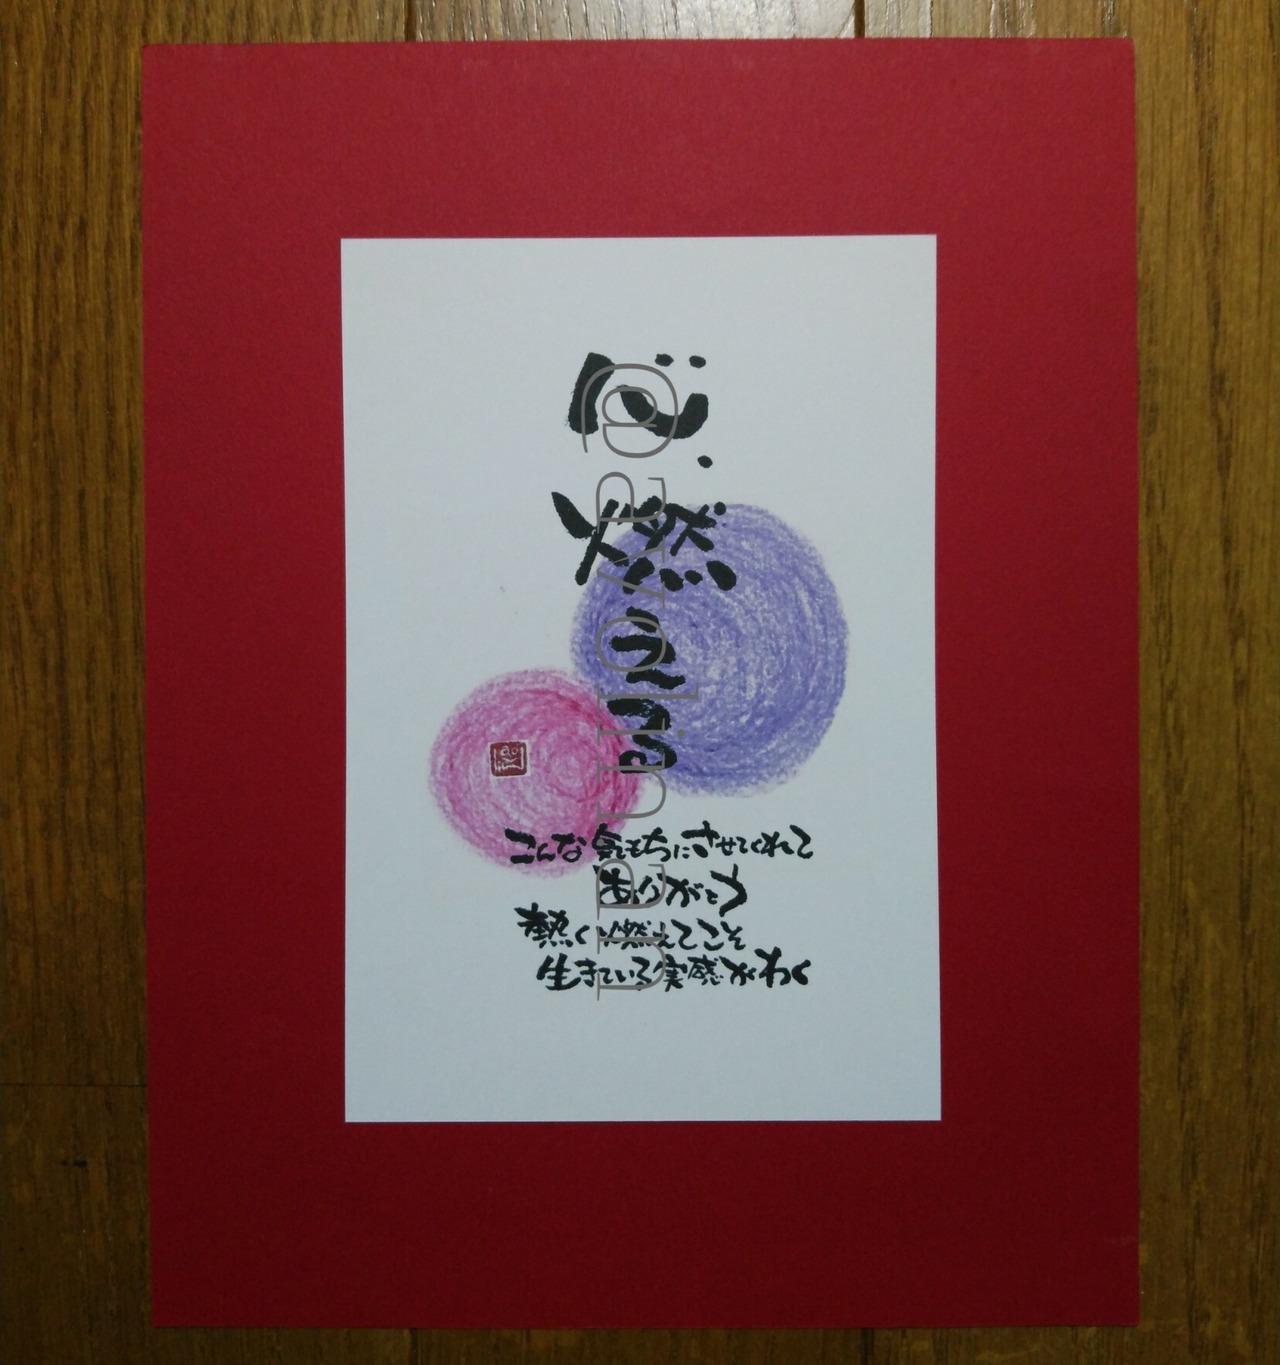 心燃える
こんな気もちにさせてくれて
ありがとう
熱く燃えてこそ
生きている実感がわく
@ayolinran